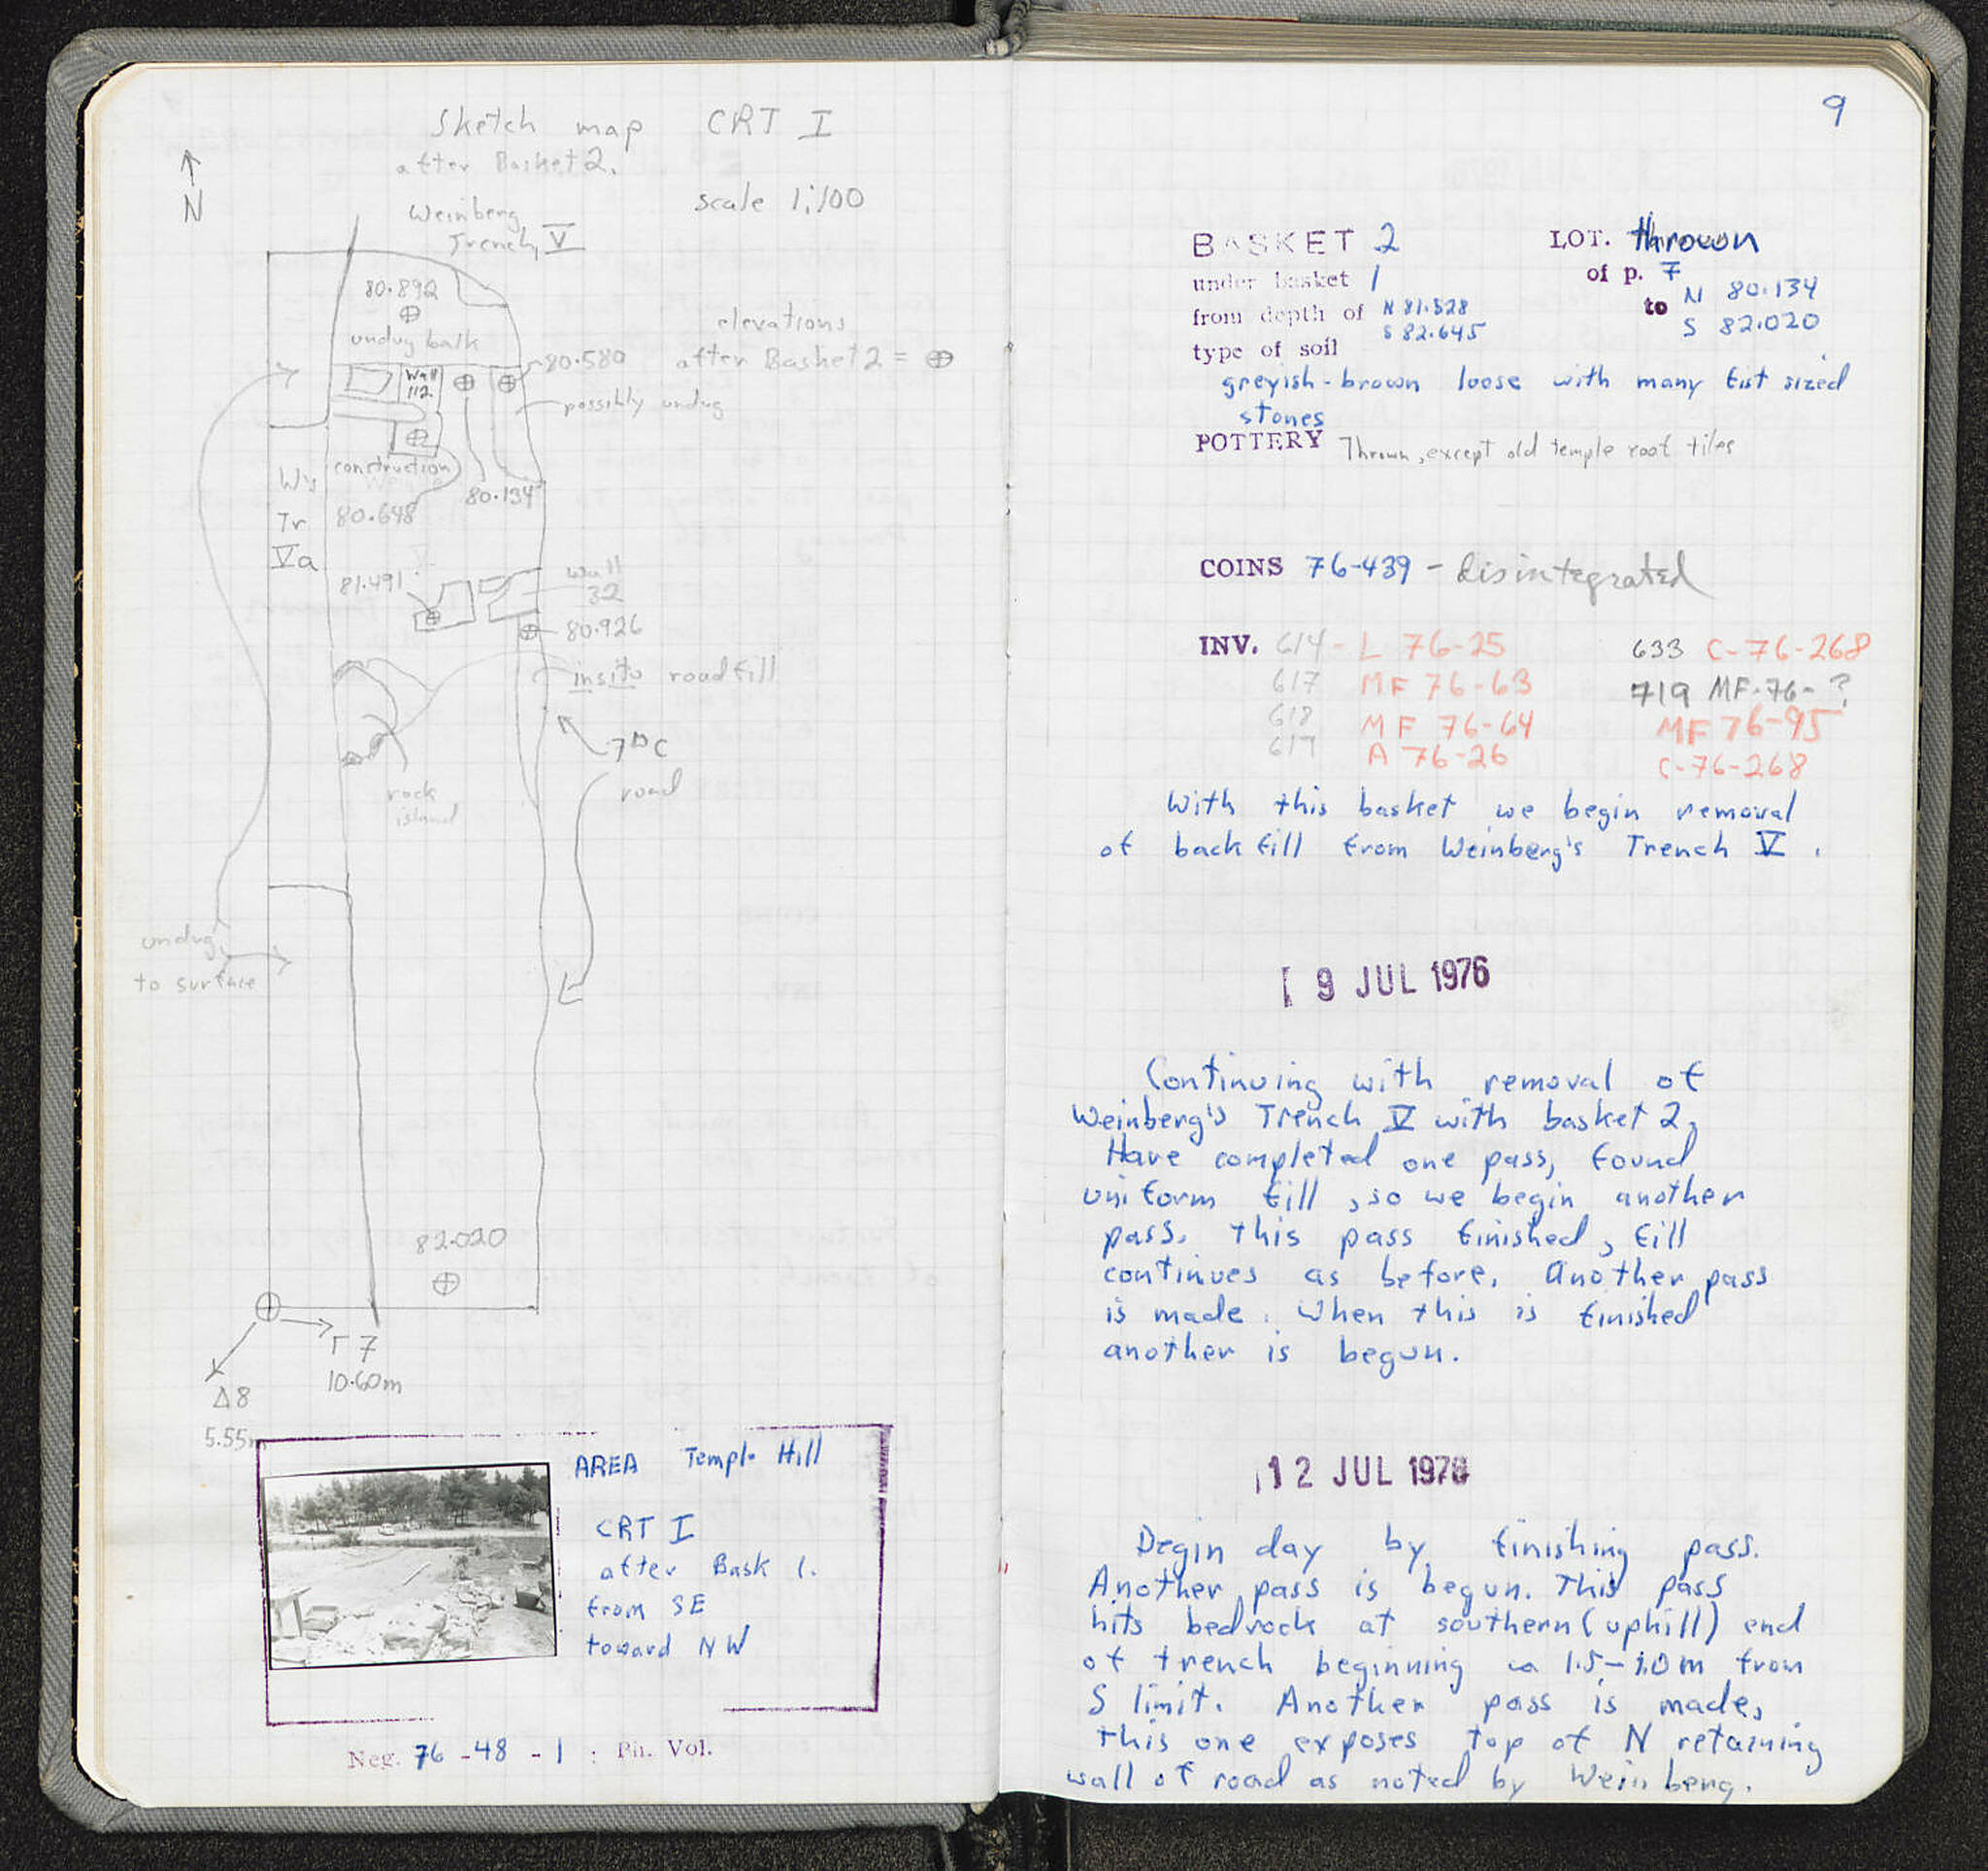 Sketch map CRT I
after Basket 2.
N
scale 1:100
Weinberg
Trench V
80.892
undug balk
elevations
after Basket 2 = ⊕
80.580
Wall
112
possibly undug
construction
W's
Tr
Va
80.134
80.648
81.491
Wall
32
80.926
in situ road fill
7th C
road
rock
island
undug
to surface
82.020
Γ 7
10.60m
Δ8
5.55m
AREA Temple Hill
CRT I
after Bask 1.
from SE
toward NW
Neg. 76-48-1 : Ph. Vol.
9
BASKET 2 LOT. thrown
under basket 1 of p. 7
from depth of N 81.528 to N 80.134
S 82.645 S 82.020
type of soil
greyish-brown loose with many fist sized
stones
POTTERY Thrown, except old temple roof tiles
COINS 76-439 - disintegrated
INV. 614 - L 76-25 633 C-76-268
617 MF 76-63 719 MF-76-?
618 MF 76-64 MF 76-95
619 A 76-26 C-76-268
With this basket we begin removal
of backfill from Weinberg's Trench V.
9 JUL 1976
Continuing with removal of
Weinberg's Trench V with basket 2,
Have completed one pass, found
uniform fill, so we begin another
pass. this pass finished, fill
continues as before. Another pass
is made. When this is finished
another is begun.
12 JUL 1976
Begin day by finishing pass.
Another pass is begun. This pass
hits bedrock at southern (uphill) end
of trench beginning ca 1.5-1.0m from
S limit. Another pass is made,
this one exposes top of N retaining
wall of road as noted by Weinberg.